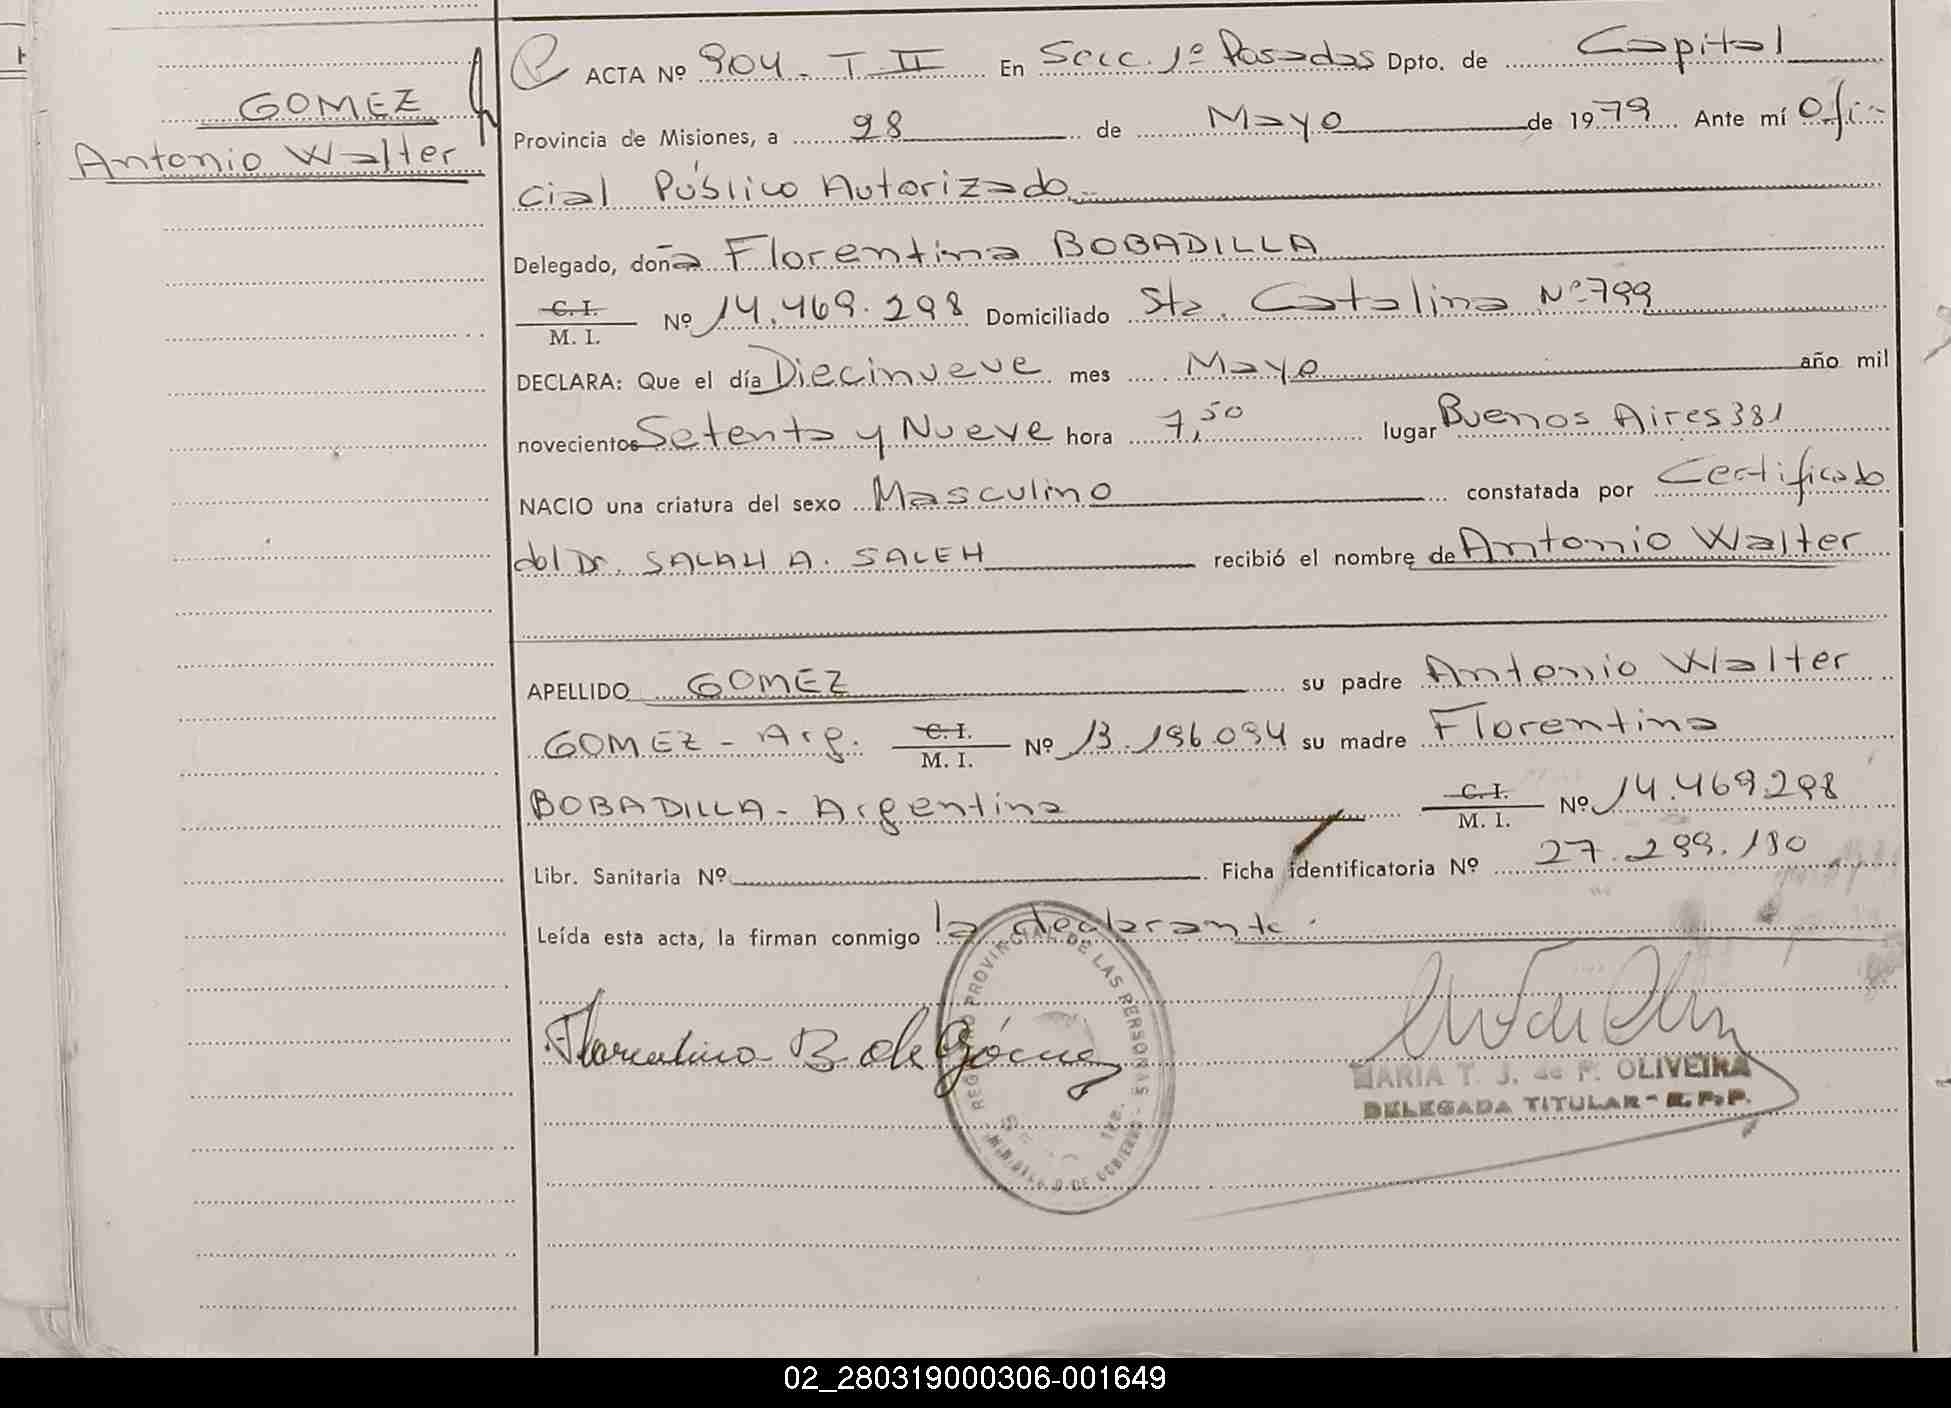 GOMEZ
Antonio Walter
ACTA Nº 904. T. II En Secc. 1º Posadas Dpto. de Capital
Provincia de Misiones, a 28 de Mayo de 1979 Ante mí Ofi-
cial Público Autorizado.
Delegado, doña Florentina BOBADILLA
C. I.
M. I. Nº 14.469.298 Domiciliado Sta. Catalina Nº 799
DECLARA: Que el día Diecinueve mes Mayo año mil
novecientos Setenta y Nueve hora 7,50 lugar Buenos Aires 381
NACIO una criatura del sexo Masculino constatada por Certificado
del Dr. SALAH A. SALEH recibió el nombre de Antonio Walter
APELLIDO GOMEZ su padre Antonio Walter
GOMEZ - Arg. C. I. M. I. Nº 13.196.094 su madre Florentina
BOBADILLA - Argentina C. I. M. I. Nº 14.469.298
Libr. Sanitaria Nº Ficha identificatoria Nº 27.299.180
Leída esta acta, la firman conmigo la declarante.
Florentina B de Gómez
REGISTRO PROVINCIAL DE LAS PERSONAS
MINISTERIO DE GOBIERNO
MARIA T. J. de P. OLIVEIRA
DELEGADA TITULAR - R. P. P.
02_280319000306-001649